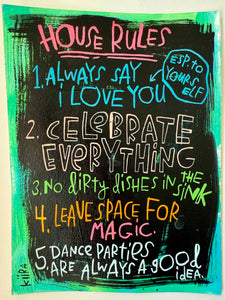 HOUSE RULES
1. ALWAYS SAY
i LOVE YOU
ESP. TO
YOURS
ELF
2. CELEBRATE
EVERYTHING
3. No dirty dishes iN THE
SINK
4. LEAVE SPACE FOR
MAGIC.
5. DANCE PARTIES
ARE ALWAYS A good
idEA.
KiiRA